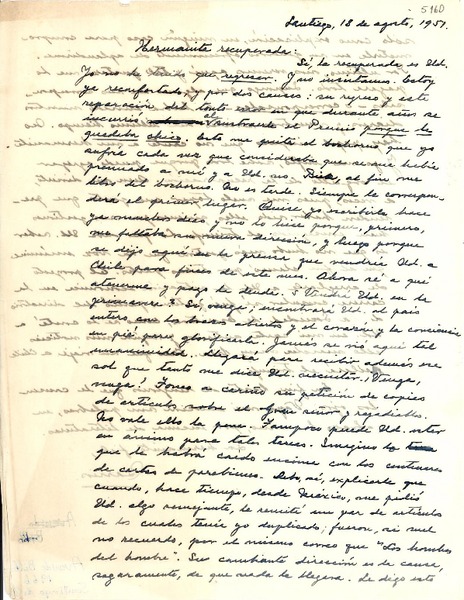 5160
Santiago, 18 de agosto, 1951.
Hermanita recuperada:
Sí, la recuperada es Ud.
Yo no he tenido que regresar. Y no insistamos. Estoy
ya reconfortado, y por dos causas: su regreso y esta
reparación del tonto error en que durante años se
incurrió al sustraerle el Premio porque le
quedaba chico. Esto me quita el bochorno que yo
sufría cada vez que consideraba que se me había
premiado a mí y a Ud. no. Bien, al fin me
libro del bochorno. No es tarde. Siempre le correspon-
derá el primer lugar. Quise yo escribirle hace
ya muchos días, y no lo hice porque, primero,
me faltaba su nueva dirección, y luego porque
se dijo aquí en la prensa que vendría Ud. a
Chile para fines de este mes. Ahora sé a qué
atenerme y pago la deuda. ¿Vendrá Ud. en la
primavera? Sí, venga; encontrará Ud. al país
entero con los brazos abiertos y el corazón y la conciencia
en pie para glorificarla. Jamás se vio aquí tal
unanimidad. Llegará para recibir además ese
sol que tanto me dice Ud. necesitar. ¡Venga,
venga! Tomo a cariño su petición de copias
de artículos sobre el Gran señor y rajadiablos.
No vale ello la pena. Tampoco puede Ud. estar
en ánimo para tales tareas. Imagino lo
que le habrá caído encima con los centenares
de cartas de parabienes. Debo, sí, explicarle que
cuando, hace tiempo, desde México, me pidió
Ud. algo semejante, le remití un par de artículos
de los cuales tenía yo duplicado; fueron, si mal
no recuerdo, por el mismo correo que "Los hombres
del hombre". Su cambiante dirección es la causa,
seguramente, de que nada le llegara. Le digo esto